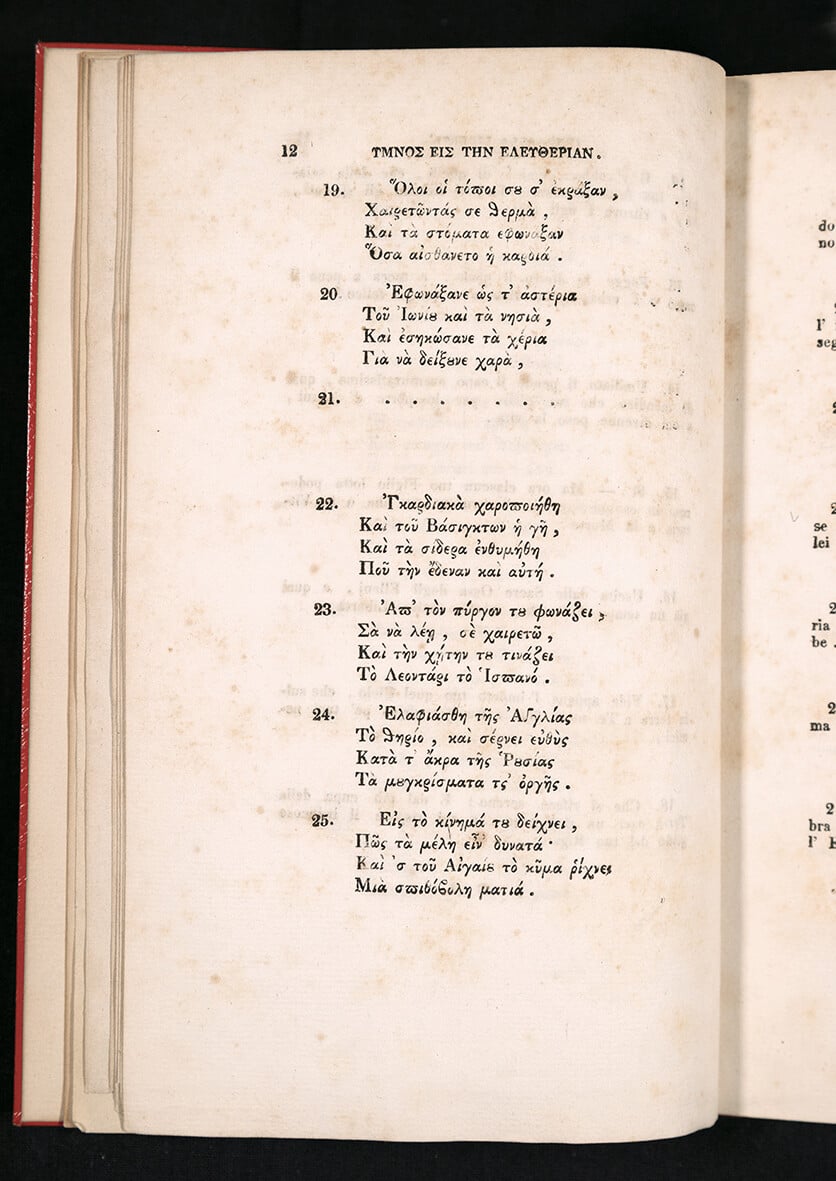 12 ΤΜΝΟΣ ΕΙΣ ΤΗΝ ΕΛΕΥΘΕΡΙΑΝ.
19. Ὅλοι οἱ τόϖοι σȣ σ' ἐκράξαν,
Χαιρετῶντάς σε θερμὰ,
Καὶ τὰ στόματα εφωναξαν
Ὅσα αἰσθάνετο ἡ καρδιά.
20 Ἐφωνάξανε ὡς τ' ἀστέρια
Τοῦ Ἰωνίȣ καὶ τὰ νησιὰ,
Καὶ ἐσηκώσανε τὰ χέρια
Γιὰ νὰ δείξȣνε χαρὰ,
21. . . . . . . .
22. Ἐγκαρδιακὰ χαροϖοιήθη
Καὶ τοῦ Βάσιγκτων ἡ γῆ,
Καὶ τὰ σίδερα ἐνθυμήθη
Ποῦ τὴν ἔδεναν καὶ αὐτή.
23. Ἀϖ' τὸν πύργον τȣ φωνάζει,
Σὰ νὰ λέῃ, σὲ χαιρετῶ,
Καὶ τὴν χήτην τȣ τινάζει
Τὸ Λεοντάρι τὸ Ἱσϖανό.
24. Ἐλαφιάσθη τῆς Ἀγγλίας
Τὸ θηρίο, καὶ σέρνει εὐθὺς
Κατὰ τ' ἄκρα τῆς Ῥȣσίας
Τὰ μȣγκρίσματα τσ' ὀργῆς.
25. Εἰς τὸ κίνημά τȣ δείχνει,
Πῶς τὰ μέλη εἶν' δυνατά·
Καὶ 'σ τοῦ Αἰγαίȣ τὸ κῦμα ῥίχνει
Μιὰ σϖιθόβολη ματιά.
do
no
l'
seg
se
lei
ria
be.
ma
bra